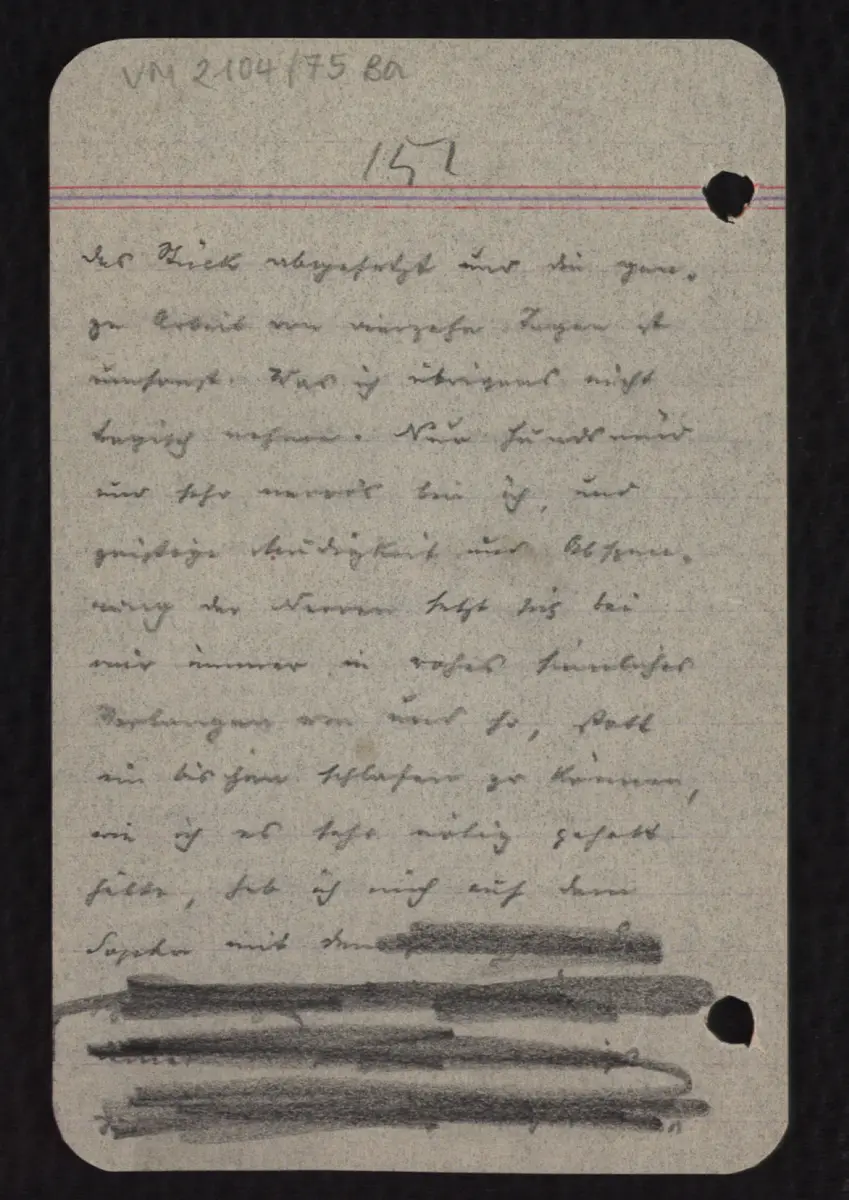 VM 2104/75 Ba
151
das Stück abgesetzt und die gan-
ze Arbeit von vierzehn Tagen ist
umsonst. Was ich übrigens nicht
tragisch nehme. Nur hundsmüd
und sehr nervös bin ich, und
geistige Müdigkeit und Abspan-
nung der Nerven setzt sich bei
mir immer in rohes sinnliches
Verlangen um und so, statt
ein bischen schlafen zu können,
wie ich es sehr nötig gehabt
hätte, hab ich mich auf dem
Sopha mit dem